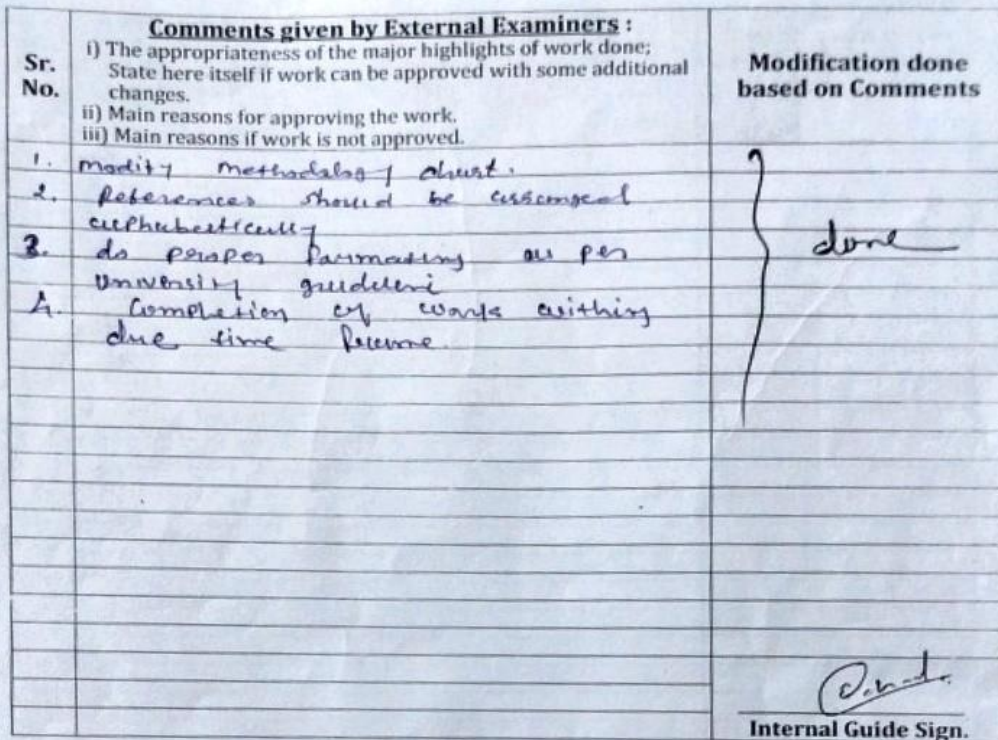 Comments given by External Examiners :
i) The appropriateness of the major highlights of work done;
State here itself if work can be approved with some additional
changes.
ii) Main reasons for approving the work.
iii) Main reasons if work is not approved.
Sr.
No.
Modification done
based on Comments
1. modify methodology chart.
2. References should be arranged
alphabetically
3. do proper formating as per
University guideline
4. Completion of work within
due time frame.
done
Internal Guide Sign.